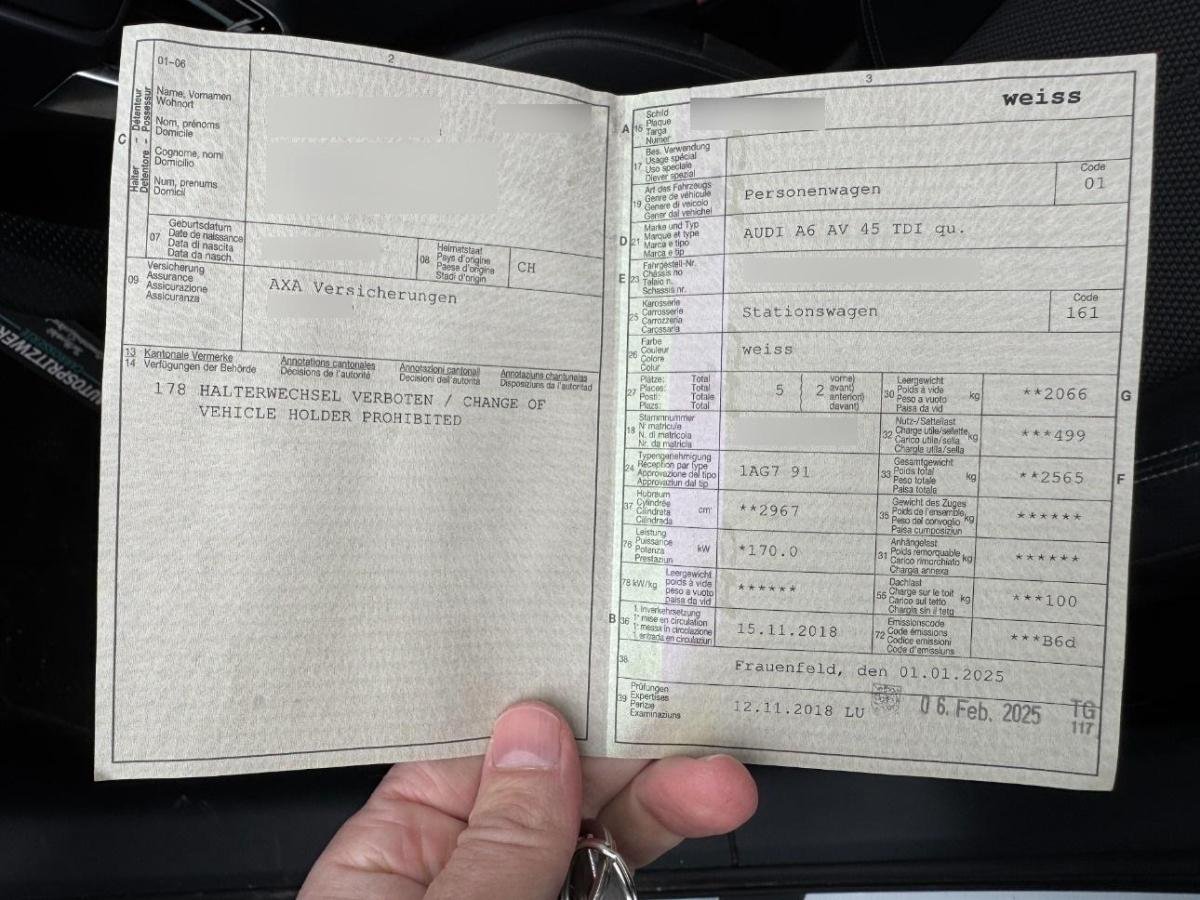 2
01-06
C
Halter - Détenteur
Detentore - Possessur
Name, Vornamen
Wohnort
Nom, prénoms
Domicile
Cognome, nomi
Domicilio
Num, prenums
Domicil
07
Geburtsdatum
Date de naissance
Data di nascita
Data da nasch.
08
Heimatstaat
Pays d'origine
Paese d'origine
Stadi d'origin
CH
09
Versicherung
Assurance
Assicurazione
Assicuranza
AXA Versicherungen
13 Kantonale Vermerke
Annotations cantonales
Annotazioni cantonali
Annotaziuns chantunalas
14 Verfügungen der Behörde
Décisions de l'autorité
Decisioni dell'autorità
Disposiziuns da l'autoritad
178 HALTERWECHSEL VERBOTEN / CHANGE OF
VEHICLE HOLDER PROHIBITED
AUTOSPRITZWERK
3
weiss
A
15
Schild
Plaque
Targa
Numer
17
Bes. Verwendung
Usage spécial
Uso speciale
Diever spezial
19
Art des Fahrzeugs
Genre de véhicule
Genere di veicolo
Gener dal vehichel
Personenwagen
Code
01
D
21
Marke und Typ
Marque et type
Marca e tipo
Marca e tip
AUDI A6 AV 45 TDI qu.
E
23
Fahrgestell-Nr.
Châssis no
Telaio n.
Schassis nr.
25
Karosserie
Carrosserie
Carrozzeria
Carossaria
Stationswagen
Code
161
26
Farbe
Couleur
Colore
Colur
weiss
27
Plätze: Total
Places: Total
Posti: Totale
Plazs: Total
5
2
vorne)
avant)
anteriori)
davant)
30
Leergewicht
Poids à vide
Peso a vuoto
Paisa da vid
kg
**2066
G
18
Stammnummer
No matricule
N. di matricola
Nr. da matricla
32
Nutz-/Sattellast
Charge utile/sellette
Carico utile/sella
Chargia utila/sella
kg
***499
24
Typengenehmigung
Réception par type
Approvazione del tipo
Approvaziun dal tip
1AG7 91
33
Gesamtgewicht
Poids total
Peso totale
Paisa totala
kg
**2565
F
37
Hubraum
Cylindrée
Cilindrata
Cilindrada
cm³
**2967
35
Gewicht des Zuges
Poids de l'ensemble
Peso del convoglio
Paisa cumposiziun
kg
******
76
Leistung
Puissance
Potenza
Prestaziun
kW
*170.0
31
Anhängelast
Poids remorquable
Carico rimorchiato
Chargia annexa
kg
******
78 kW/kg
Leergewicht
poids à vide
peso a vuoto
paisa da vid
******
55
Dachlast
Charge sur le toit
Carico sul tetto
Chargia sin il tetg
kg
***100
B
36
1. Inverkehrsetzung
1re mise en circulation
1a messa in circolazione
1. entrada en circulaziun
15.11.2018
72
Emissionscode
Code émissions
Codice emissioni
Code d'emissiuns
***B6d
38
Frauenfeld, den 01.01.2025
39
Prüfungen
Expertises
Perizie
Examinaziuns
12.11.2018 LU
06. Feb. 2025
TG
117